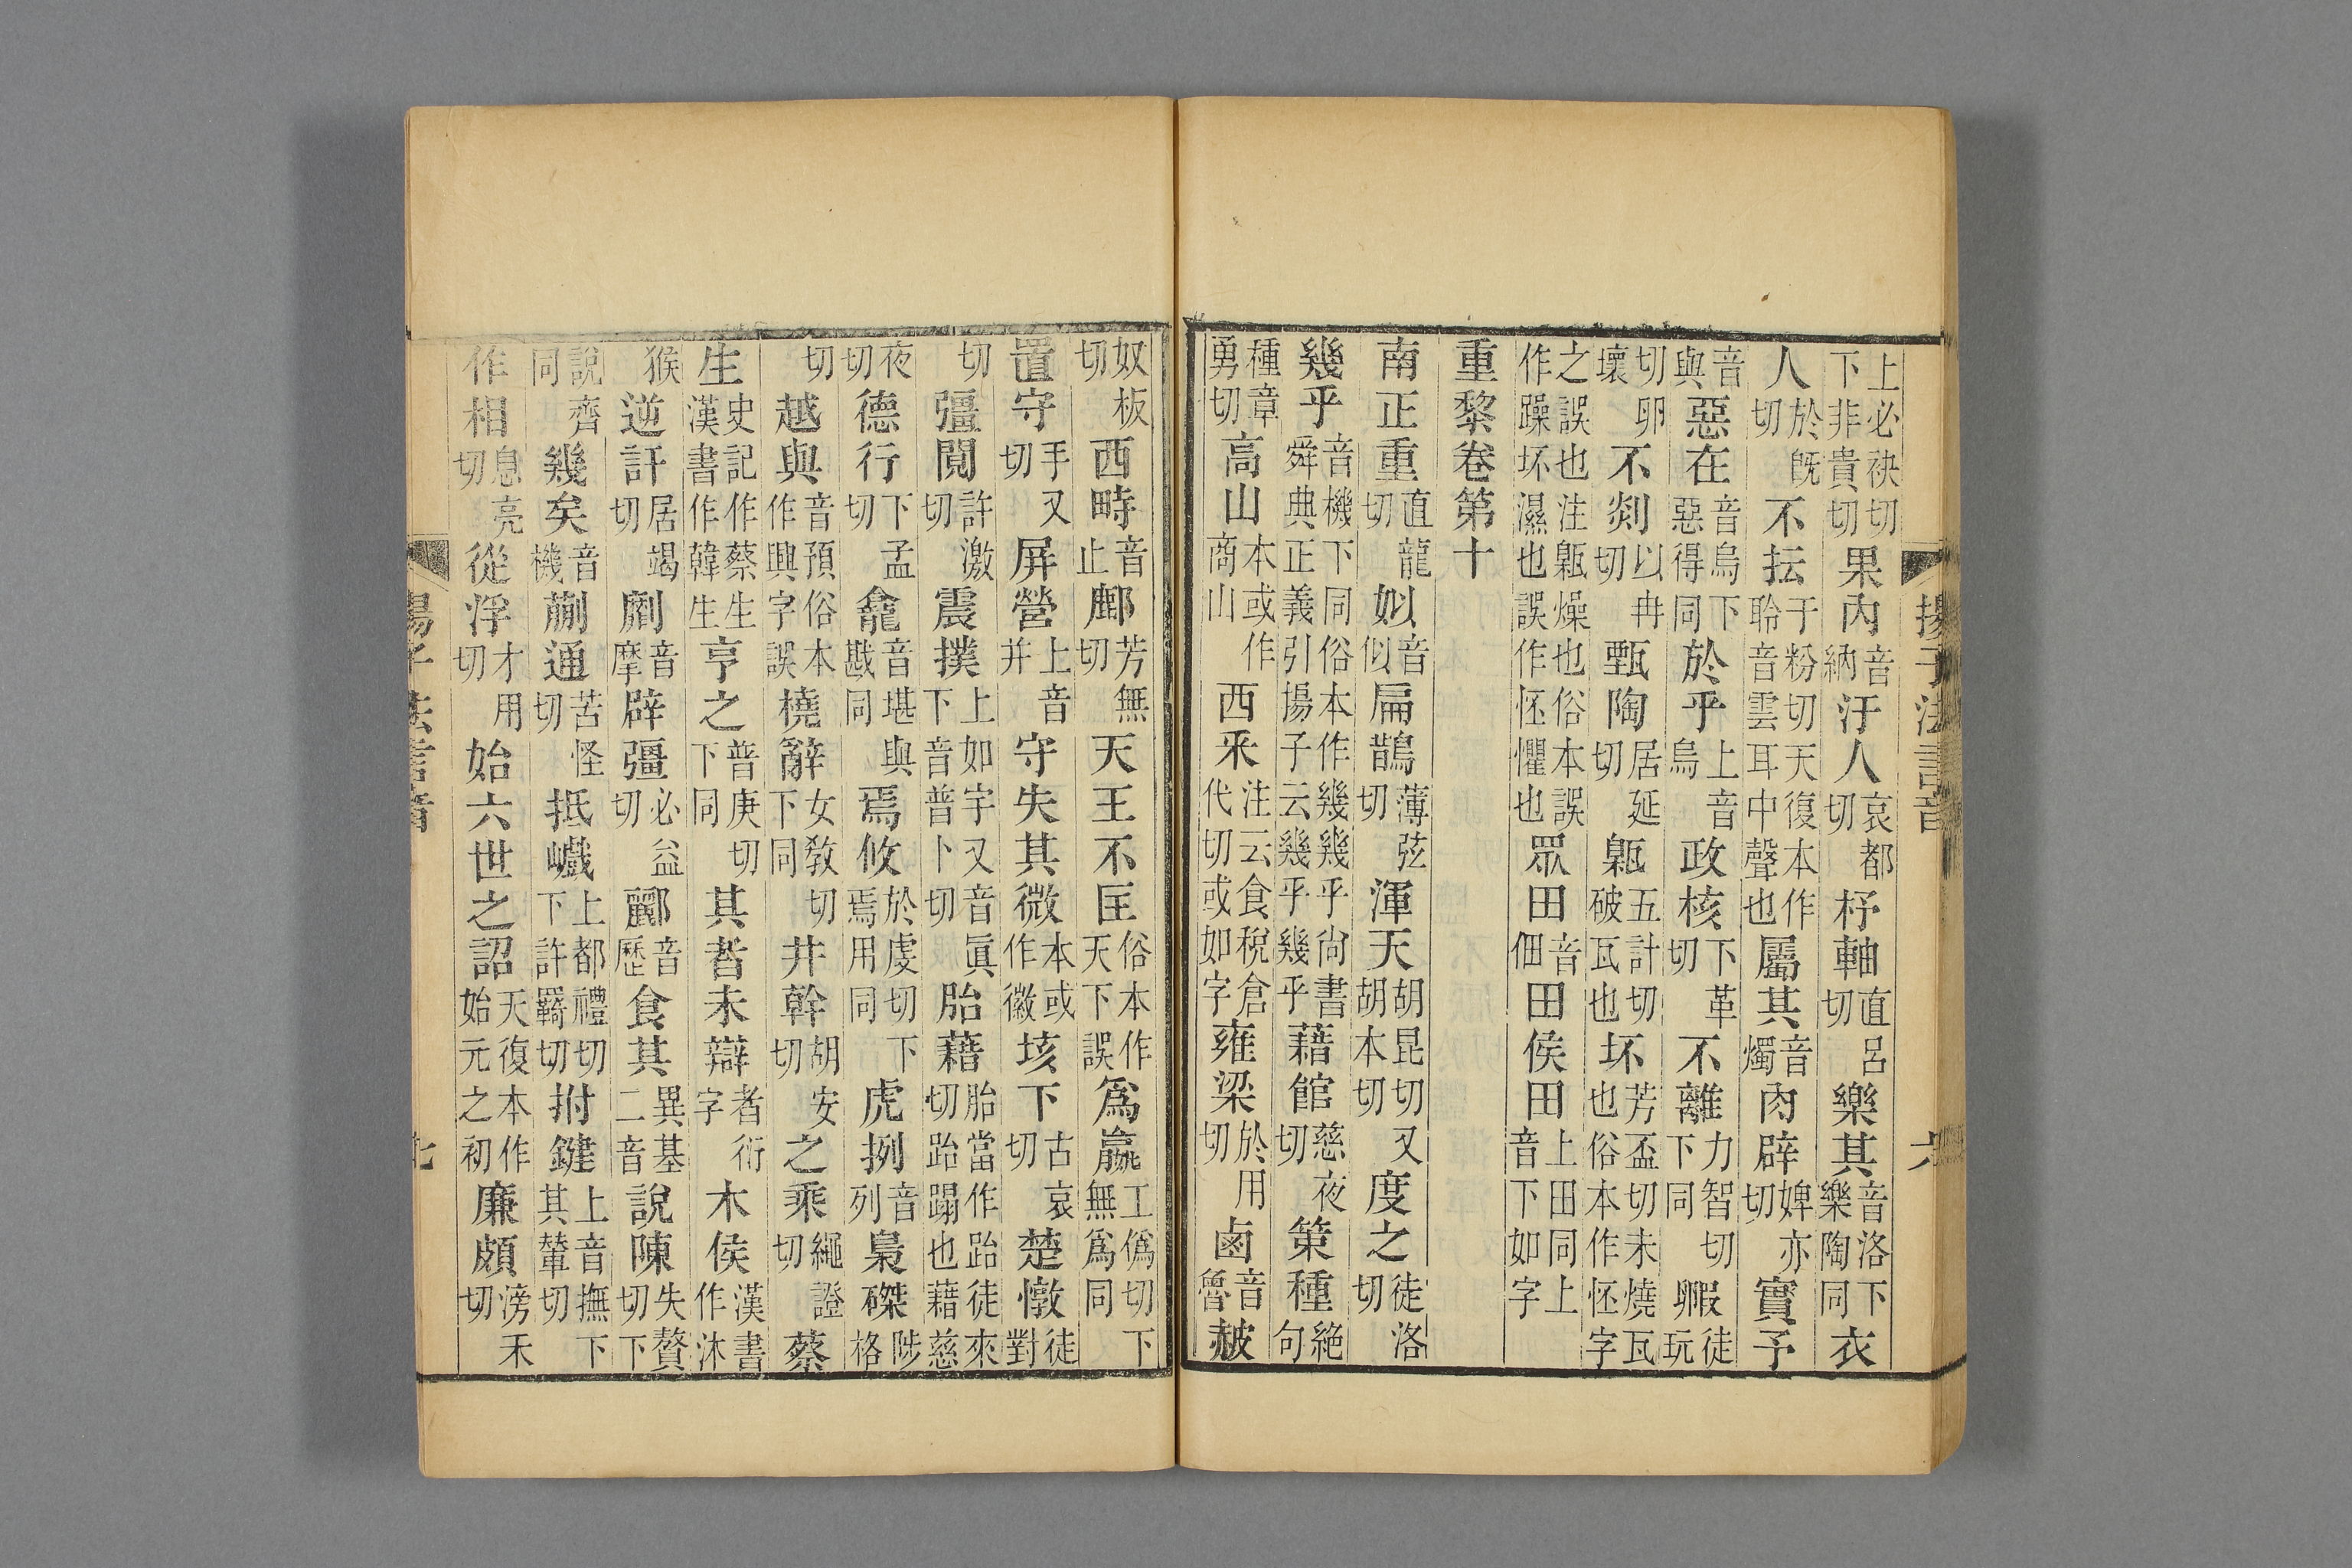 上必袂切下非貴切果內音納汙人哀都切杼軸直呂切樂其音洛下樂陶同衣
人於旣切不抎于粉切天復本作聆音雲耳中聲也屬其音燭肉辟婢亦切實予
音與惡在音烏下惡得同於乎上音烏政核下革切不離力智切下同毈徒玩
切卵壞不剡以冉切甄陶居延切甈五計切破瓦也坏芳盃切未燒瓦也俗本作怌字
之誤也注甈燥也俗本誤作躁坏濕也誤作怌懼也眾田音佃田侯田上田同上音下如字
重黎卷第十
南正重直龍切姒音似扁鵲薄弦切渾天胡昆切又胡本切度之徒洛切
幾乎音機下同俗本作幾幾乎尙書舜典正義引揚子云幾乎幾乎藉館慈夜切策種絕句
種章勇切高山本或作商山西釆注云食稅倉代切或如字雍梁於用切鹵音魯赦
奴板切西畤音止鄜芳無切天王不匡俗本作天下誤爲嬴工僞切下無爲同
置守手又切屏營上音幷守失其微本或作徽垓下古哀切楚憞徒對
切彊鬩許激切震撲上如字又音眞下音普卜切胎藉胎當作跆徒來切跆蹋也藉慈
夜切德行下孟切龕音堪與戡同焉攸於虔切下焉用同虎挒音列梟磔陟格
切越與音預俗本作興字誤橈辭女敎切下同井幹胡安切之乘繩證切蔡
生史記作蔡生漢書作韓生亨之普庚切下同其者未辯者衍字木侯漢書作沐
猴逆訐居竭切劘音摩辟彊必益切酈音歷食其異基二音說陳失贅切下
說齊同幾矣音機蒯通苦怪切抵巇上都禮切下許羈切拊鍵上音撫下其輦切
作相息亮切從浮才用切始六世之詔天復本作始元之初廉頗滂禾切
揚子法言音 六